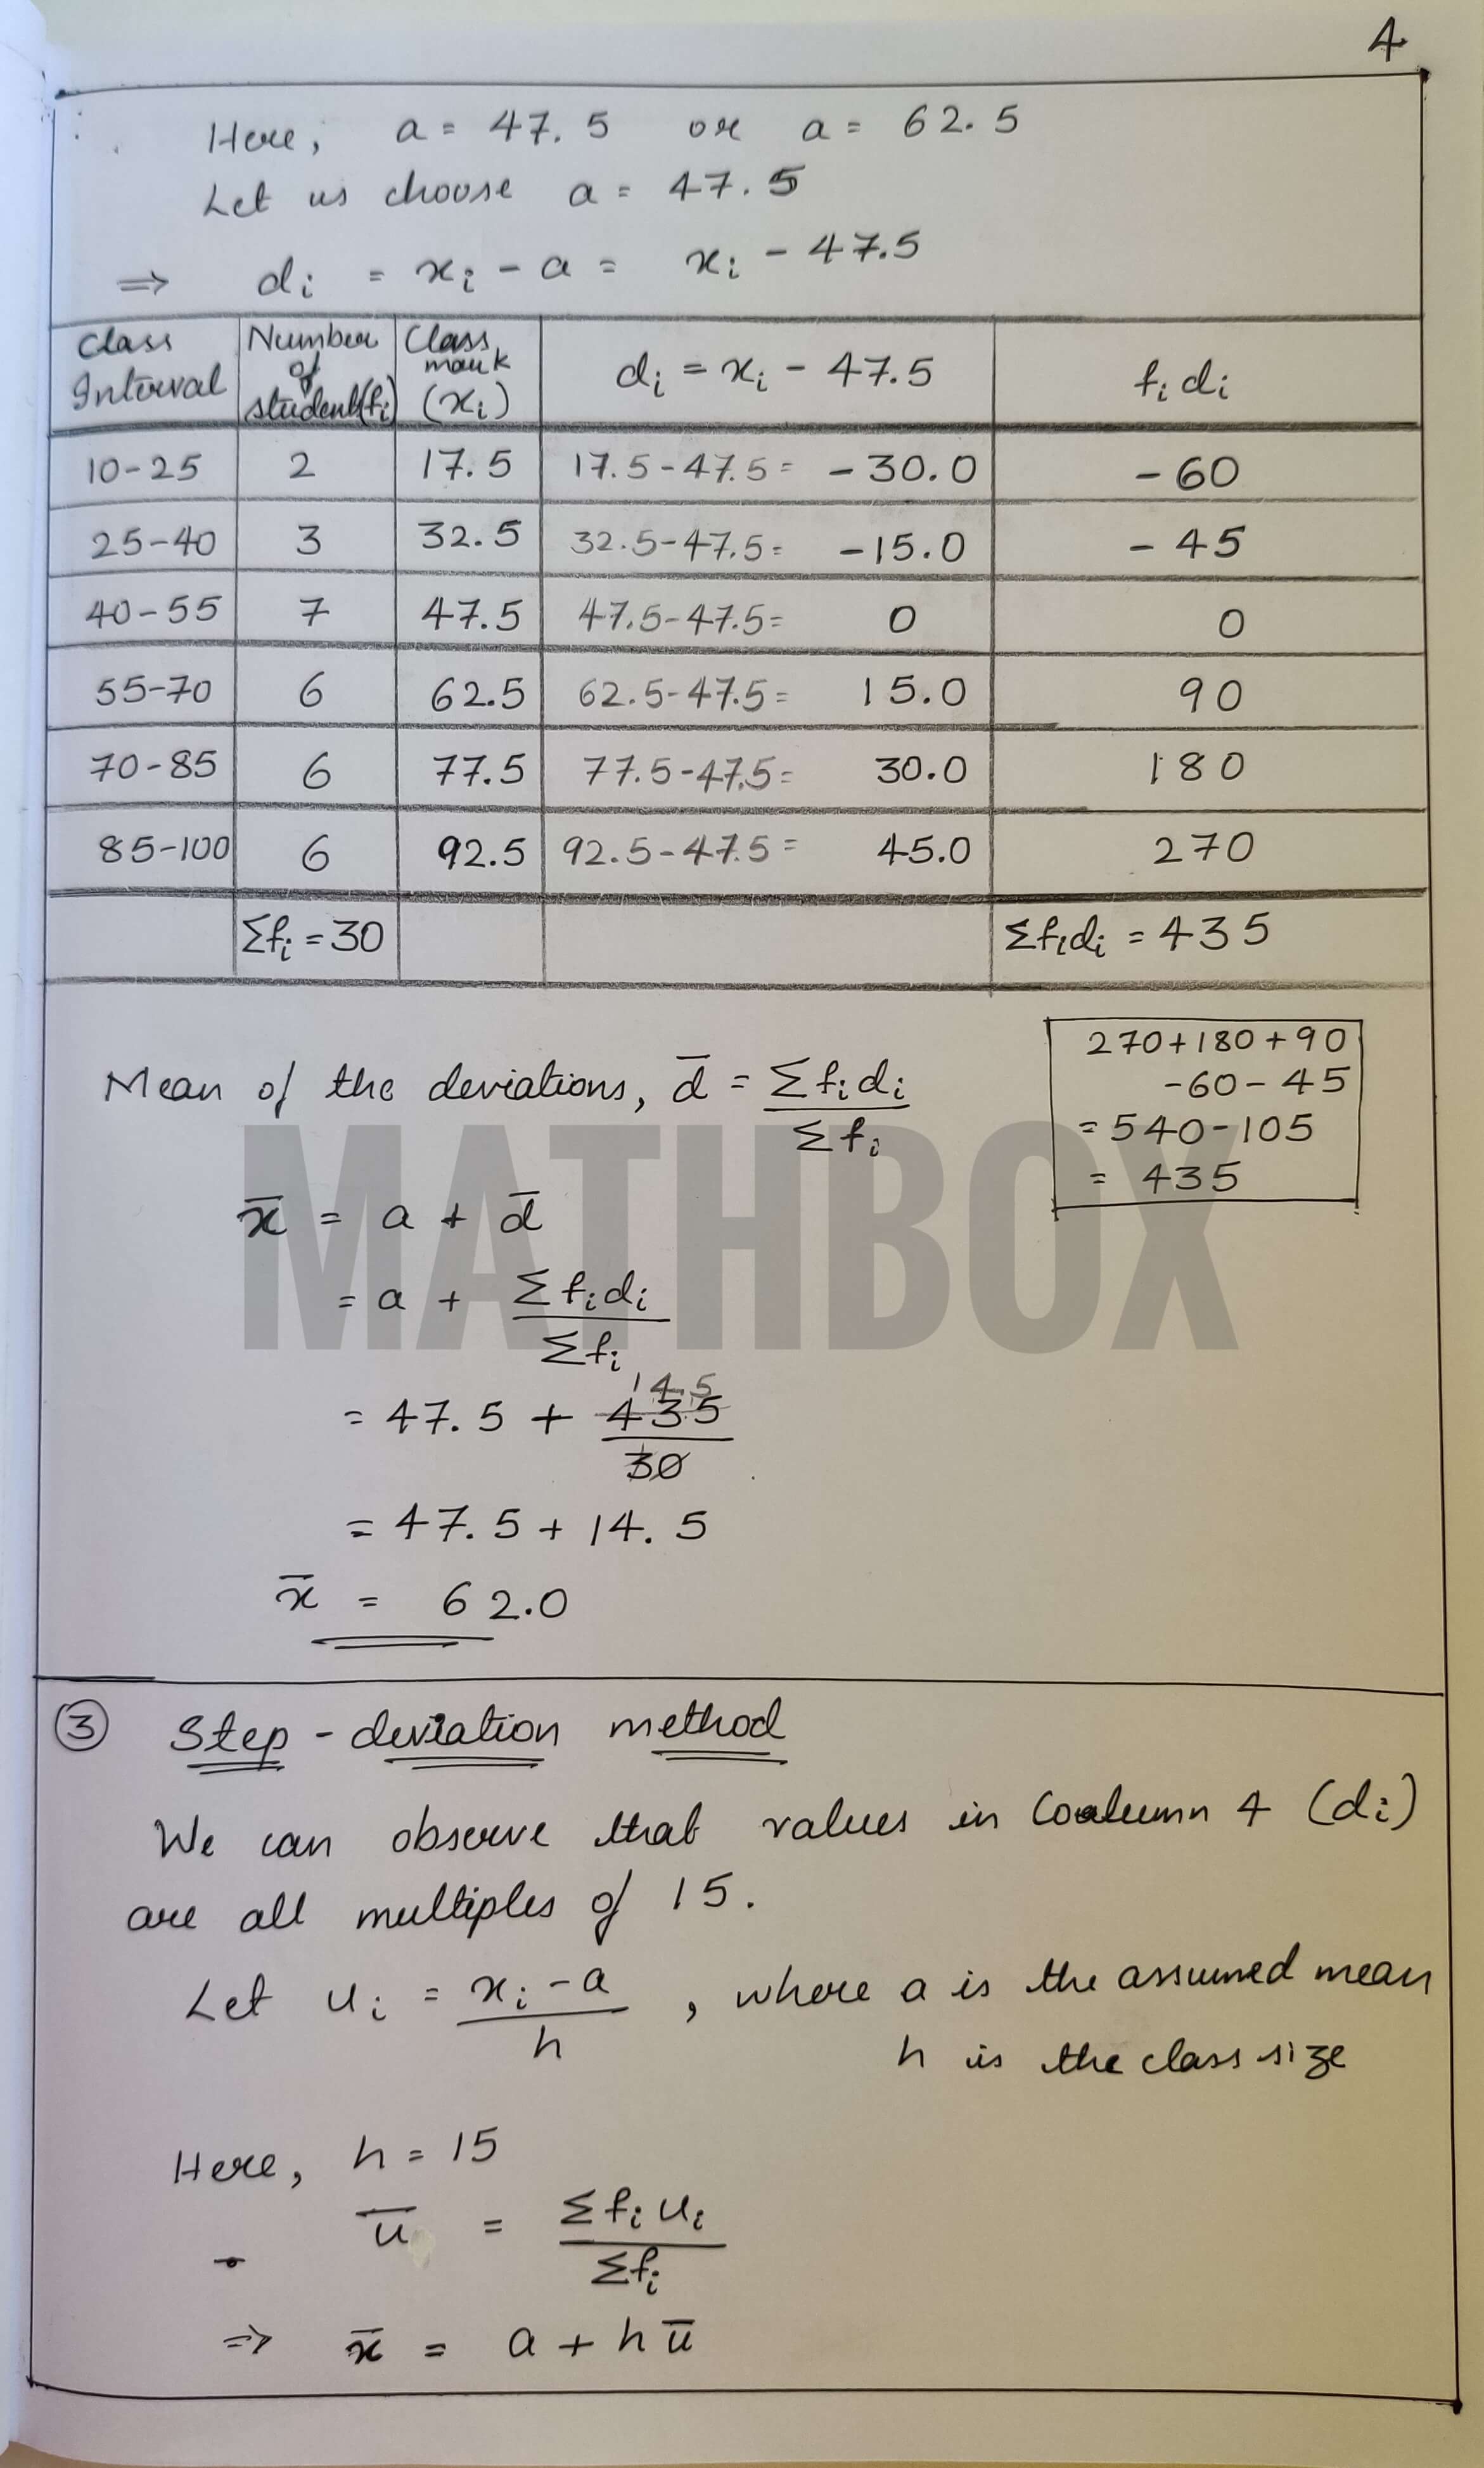 4
Here, a = 47.5 or a = 62.5
Let us choose a = 47.5
⇒ di = xi - a = xi - 47.5
Class Interval | Number of student(fi) | Class mark (xi) | di = xi - 47.5 | fi di
10-25 | 2 | 17.5 | 17.5-47.5 = -30.0 | -60
25-40 | 3 | 32.5 | 32.5-47.5 = -15.0 | -45
40-55 | 7 | 47.5 | 47.5-47.5 = 0 | 0
55-70 | 6 | 62.5 | 62.5-47.5 = 15.0 | 90
70-85 | 6 | 77.5 | 77.5-47.5 = 30.0 | 180
85-100 | 6 | 92.5 | 92.5-47.5 = 45.0 | 270
Σfi = 30 | Σfidi = 435
Mean of the deviations, d̄ = Σfidi / Σfi
270+180+90
-60-45
= 540-105
= 435
MATHBOX
x̄ = a + d̄
= a + Σfidi / Σfi
14.5
= 47.5 + 435 / 30
= 47.5 + 14.5
x̄ = 62.0
③ Step-deviation method
We can observe that values in Column 4 (di)
are all multiples of 15.
Let ui = xi - a / h, where a is the assumed mean
h is the class size
Here, h = 15
ū = Σfiui / Σfi
⇒ x̄ = a + hū